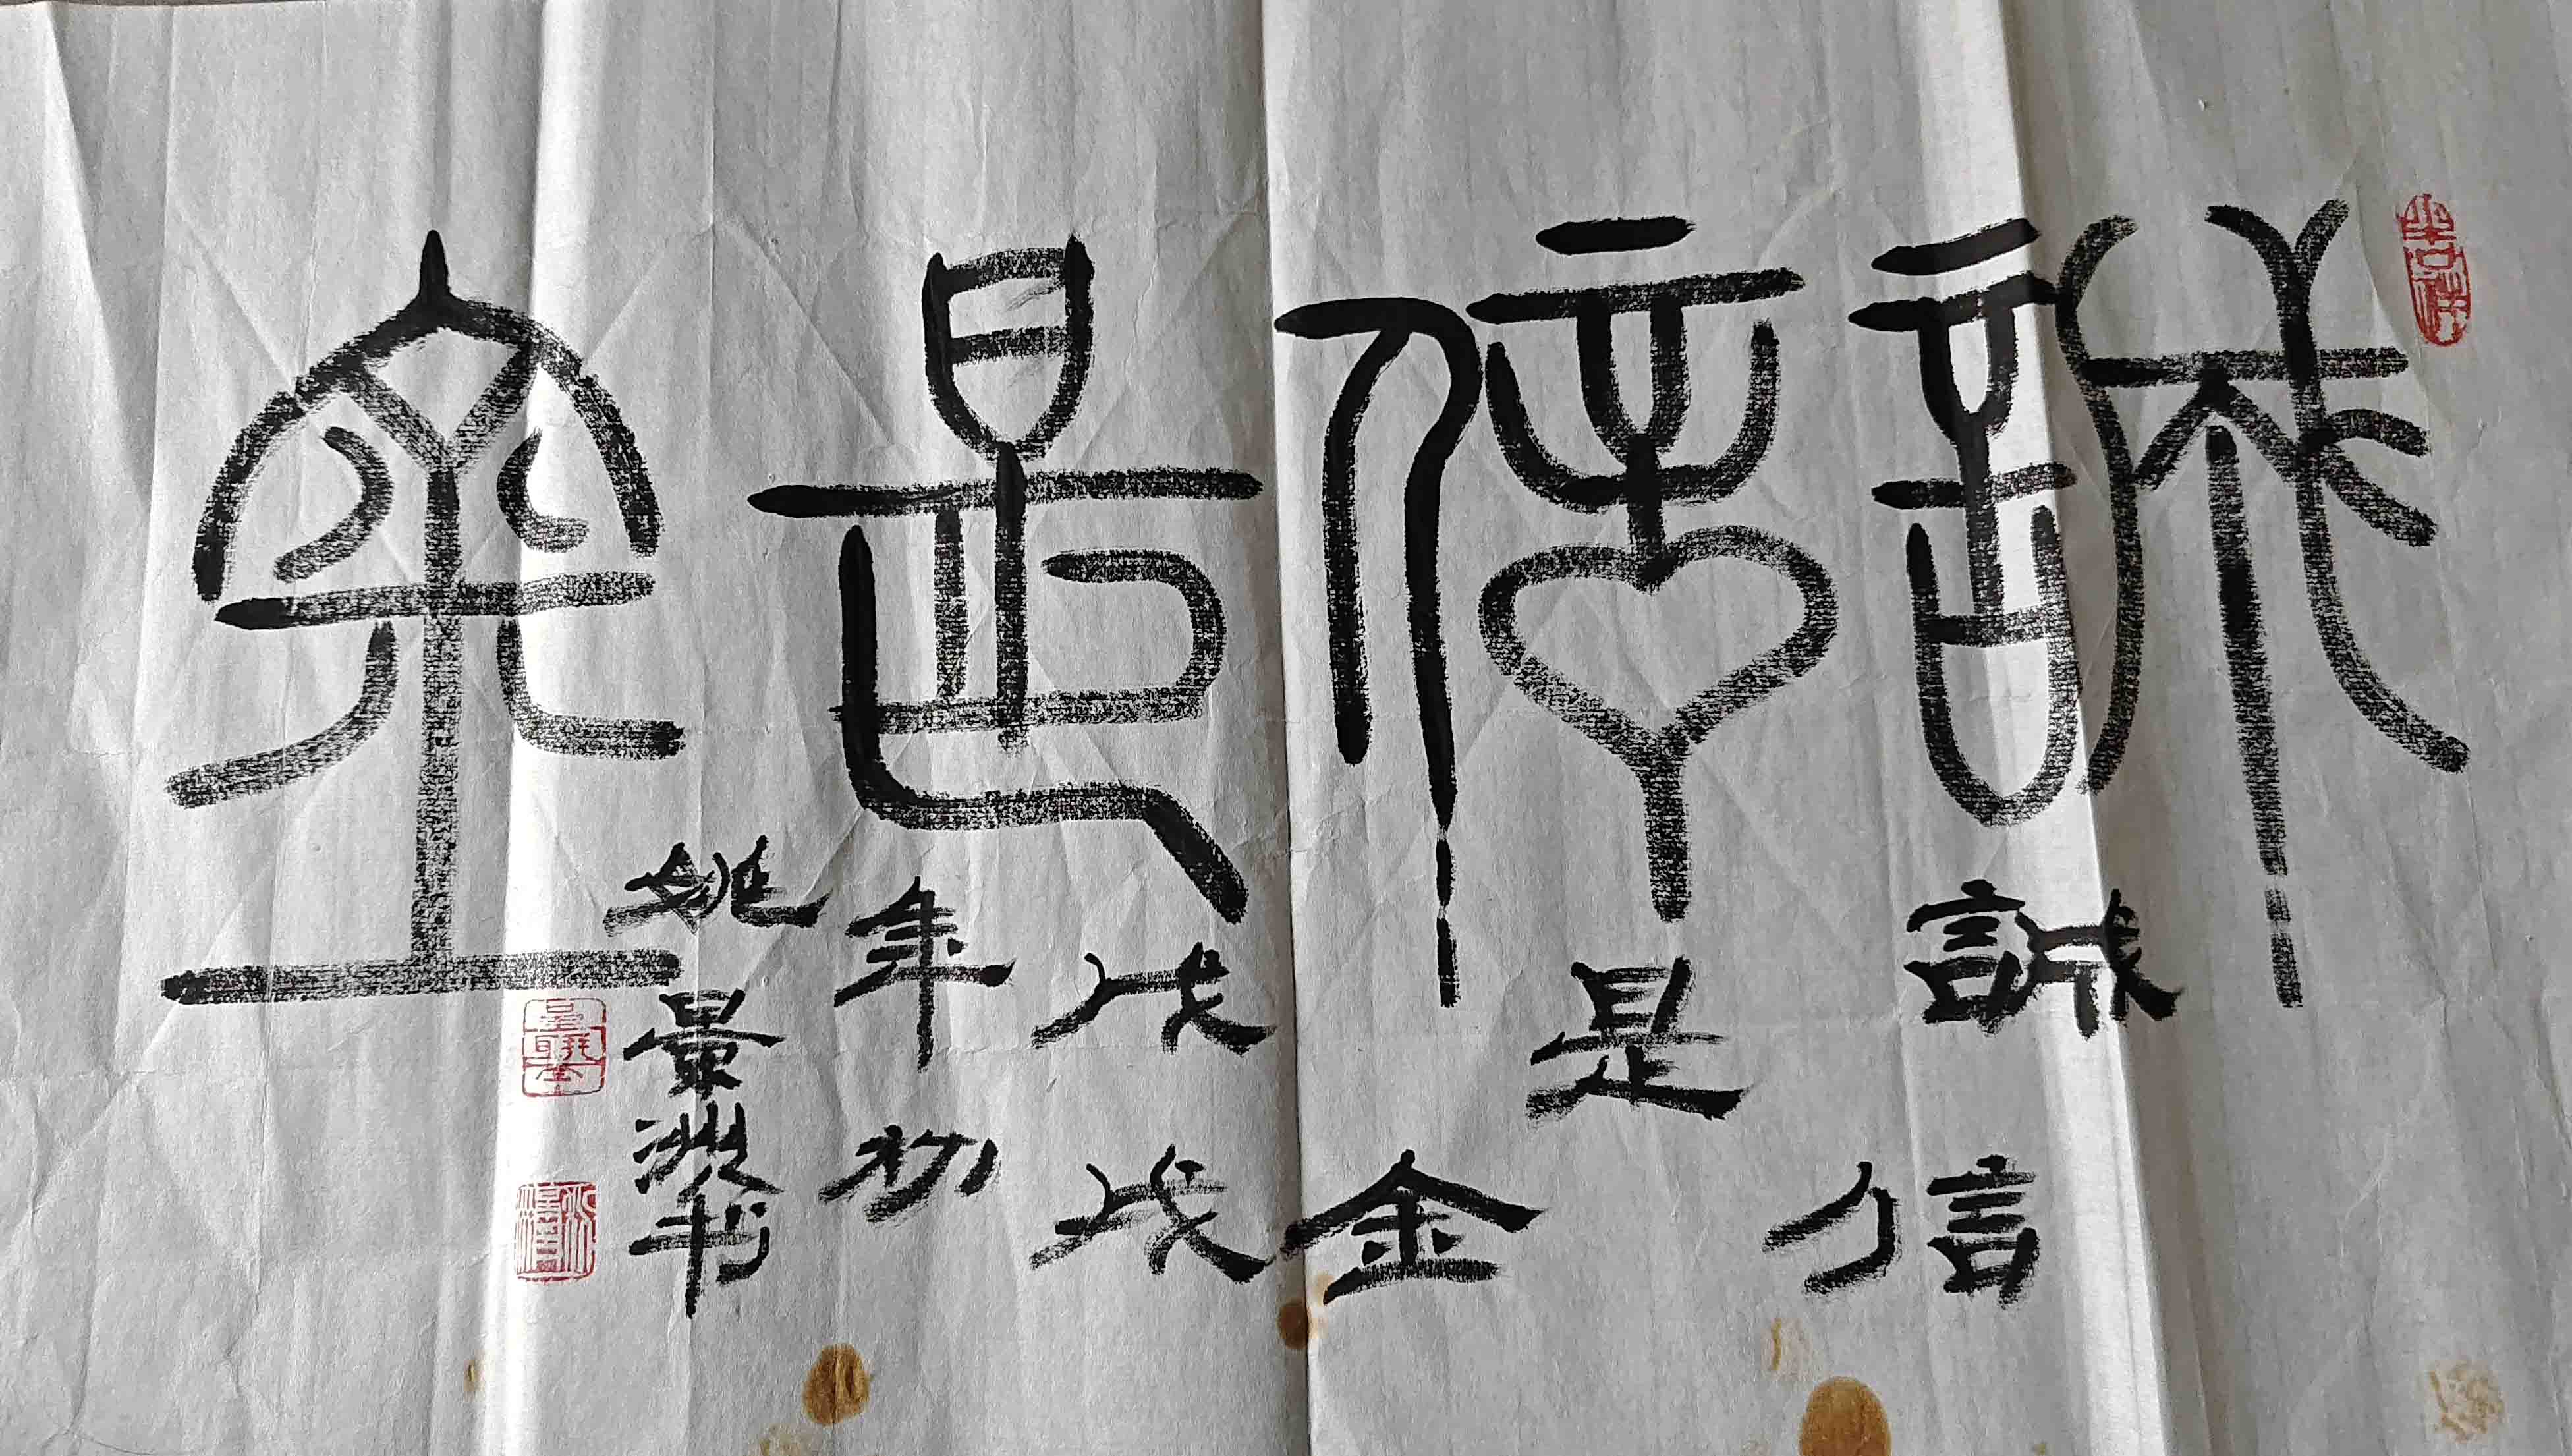 誠信是金
誠信
是金
戊戌
年初
姚景洲书